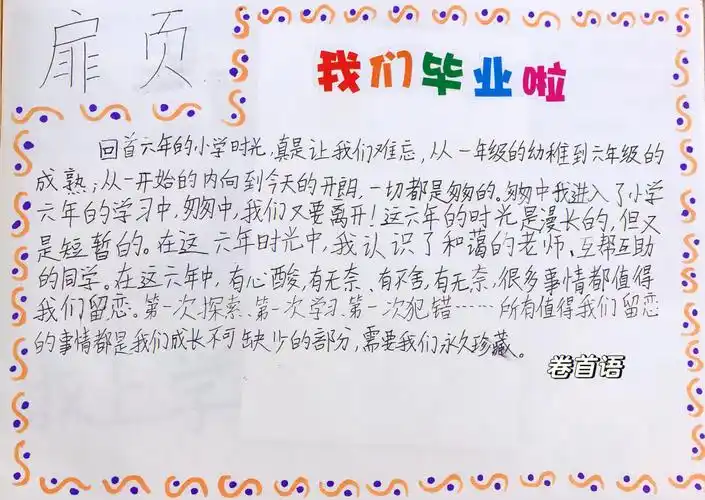 扉页
我们毕业啦
回首六年的小学时光,真是让我们难忘,从一年级的幼稚到六年级的
成熟;从一开始的内向到今天的开朗,一切都是匆匆的。匆匆中我进入了小学
六年的学习中,匆匆中,我们又要离开!这六年的时光是漫长的,但又
是短暂的。在这六年时光中,我认识了和蔼的老师、互帮互助
的同学。在这六年中,有心酸,有无奈、有不舍,有无奈,很多事情都值得
我们留恋。第一次探索、第一次学习、第一次犯错……所有值得我们留恋
的事情都是我们成长不可缺少的部分,需要我们永久珍藏。
卷首语